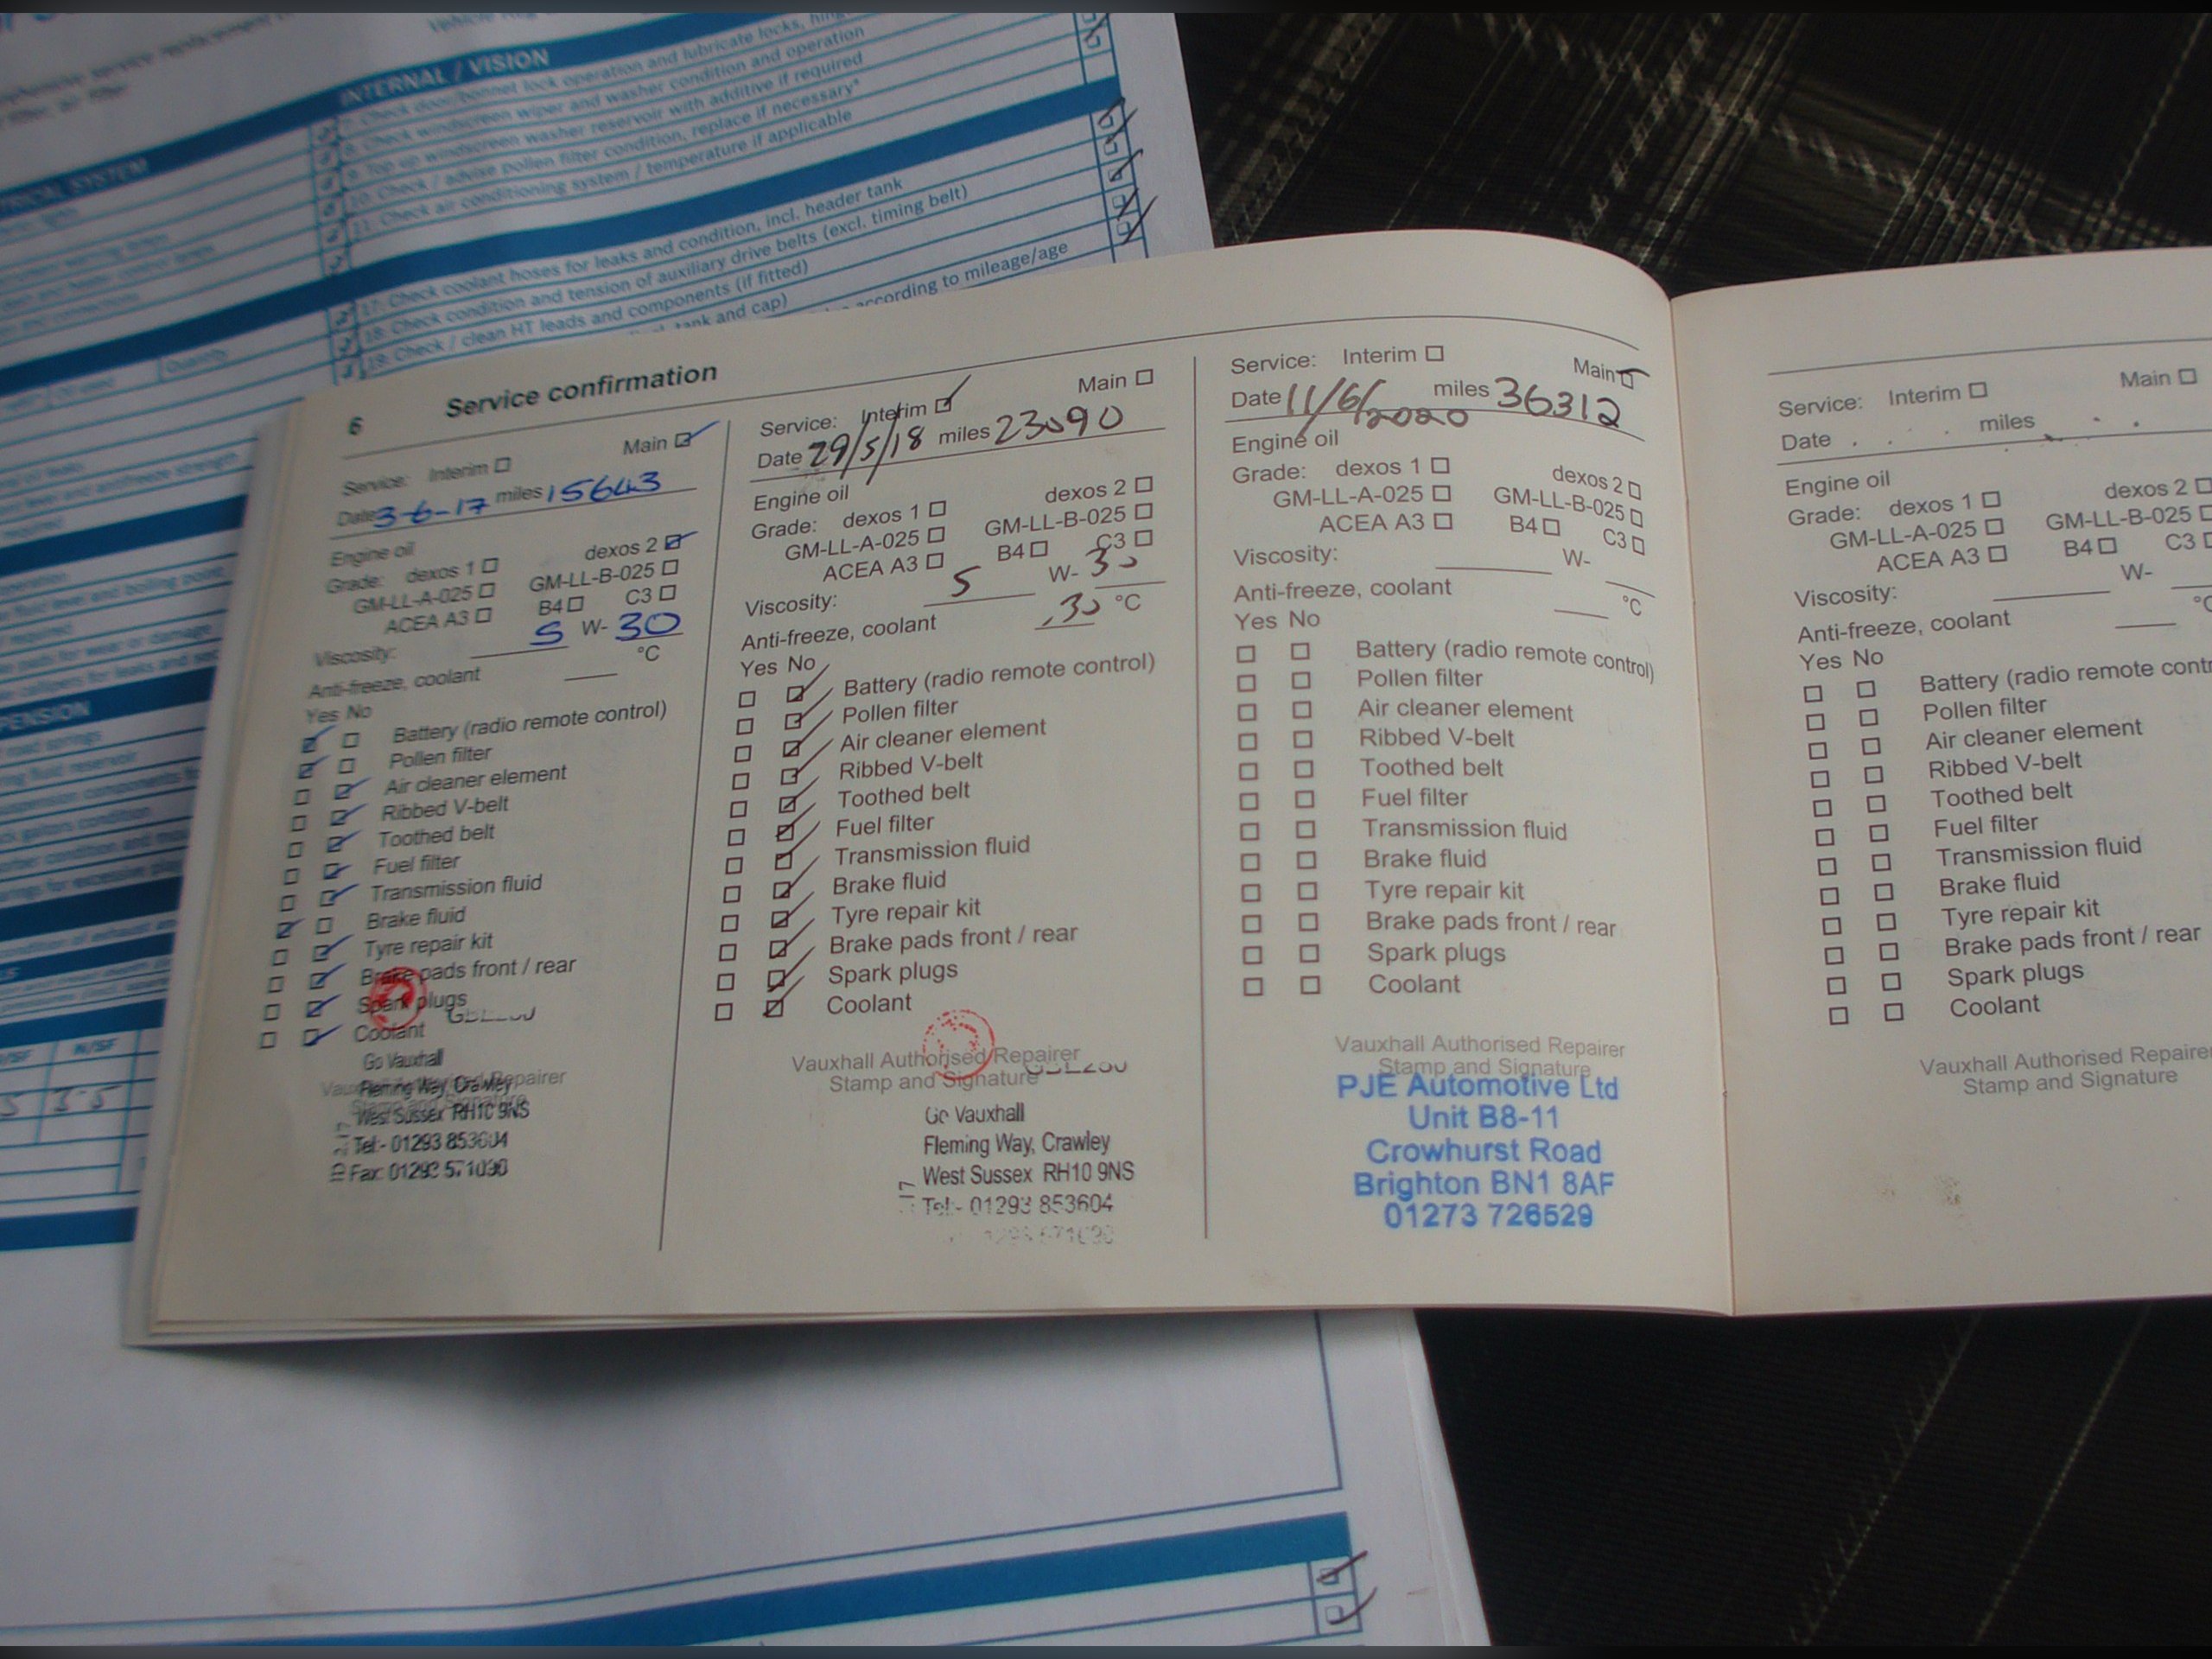 INTERNAL / VISION
7. Check door/bonnet lock operation and lubricate locks,
8. Check windscreen wiper and washer condition and operation
9. Top up windscreen washer reservoir with additive if required
10. Check / advise pollen filter condition, replace if necessary*
11. Check air conditioning system / temperature if applicable
17. Check coolant hoses for leaks and condition, incl. header tank
18. Check condition and tension of auxiliary drive belts (excl. timing belt)
19. Check / clean HT leads and components (if fitted)
tank and cap)
according to mileage/age
Quantity
6 Service confirmation
Service: Interim Main
Date 3-6-17 miles 15643
Engine oil
Grade: dexos 1 dexos 2
GM-LL-A-025 GM-LL-B-025
ACEA A3 B4 C3
Viscosity: 5 W- 30
Anti-freeze, coolant °C
Yes No
Battery (radio remote control)
Pollen filter
Air cleaner element
Ribbed V-belt
Toothed belt
Fuel filter
Transmission fluid
Brake fluid
Tyre repair kit
Brake pads front / rear
Spark plugs
Coolant
Vauxhall Authorised Repairer
Stamp and Signature
Go Vauxhall
Fleming Way, Crawley
West Sussex RH10 9NS
Tel:- 01293 853604
Fax: 01293 571090
Service: Interim Main
Date 29/5/18 miles 23090
Engine oil
Grade: dexos 1 dexos 2
GM-LL-A-025 GM-LL-B-025
ACEA A3 B4 C3
Viscosity: 5 W- 30
Anti-freeze, coolant 30 °C
Yes No
Battery (radio remote control)
Pollen filter
Air cleaner element
Ribbed V-belt
Toothed belt
Fuel filter
Transmission fluid
Brake fluid
Tyre repair kit
Brake pads front / rear
Spark plugs
Coolant
Vauxhall Authorised Repairer
Stamp and Signature
Go Vauxhall
Fleming Way, Crawley
West Sussex RH10 9NS
Tel:- 01293 853604
Service: Interim Main
Date 11/6/2020 miles 36312
Engine oil
Grade: dexos 1 dexos 2
GM-LL-A-025 GM-LL-B-025
ACEA A3 B4 C3
Viscosity: W-
Anti-freeze, coolant °C
Yes No
Battery (radio remote control)
Pollen filter
Air cleaner element
Ribbed V-belt
Toothed belt
Fuel filter
Transmission fluid
Brake fluid
Tyre repair kit
Brake pads front / rear
Spark plugs
Coolant
Vauxhall Authorised Repairer
Stamp and Signature
PJE Automotive Ltd
Unit B8-11
Crowhurst Road
Brighton BN1 8AF
01273 726529
Service: Interim Main
Date miles
Engine oil
Grade: dexos 1 dexos 2
GM-LL-A-025 GM-LL-B-025
ACEA A3 B4 C3
Viscosity: W-
Anti-freeze, coolant
Yes No
Battery (radio remote
Pollen filter
Air cleaner element
Ribbed V-belt
Toothed belt
Fuel filter
Transmission fluid
Brake fluid
Tyre repair kit
Brake pads front / rear
Spark plugs
Coolant
Vauxhall Authorised Repairer
Stamp and Signature